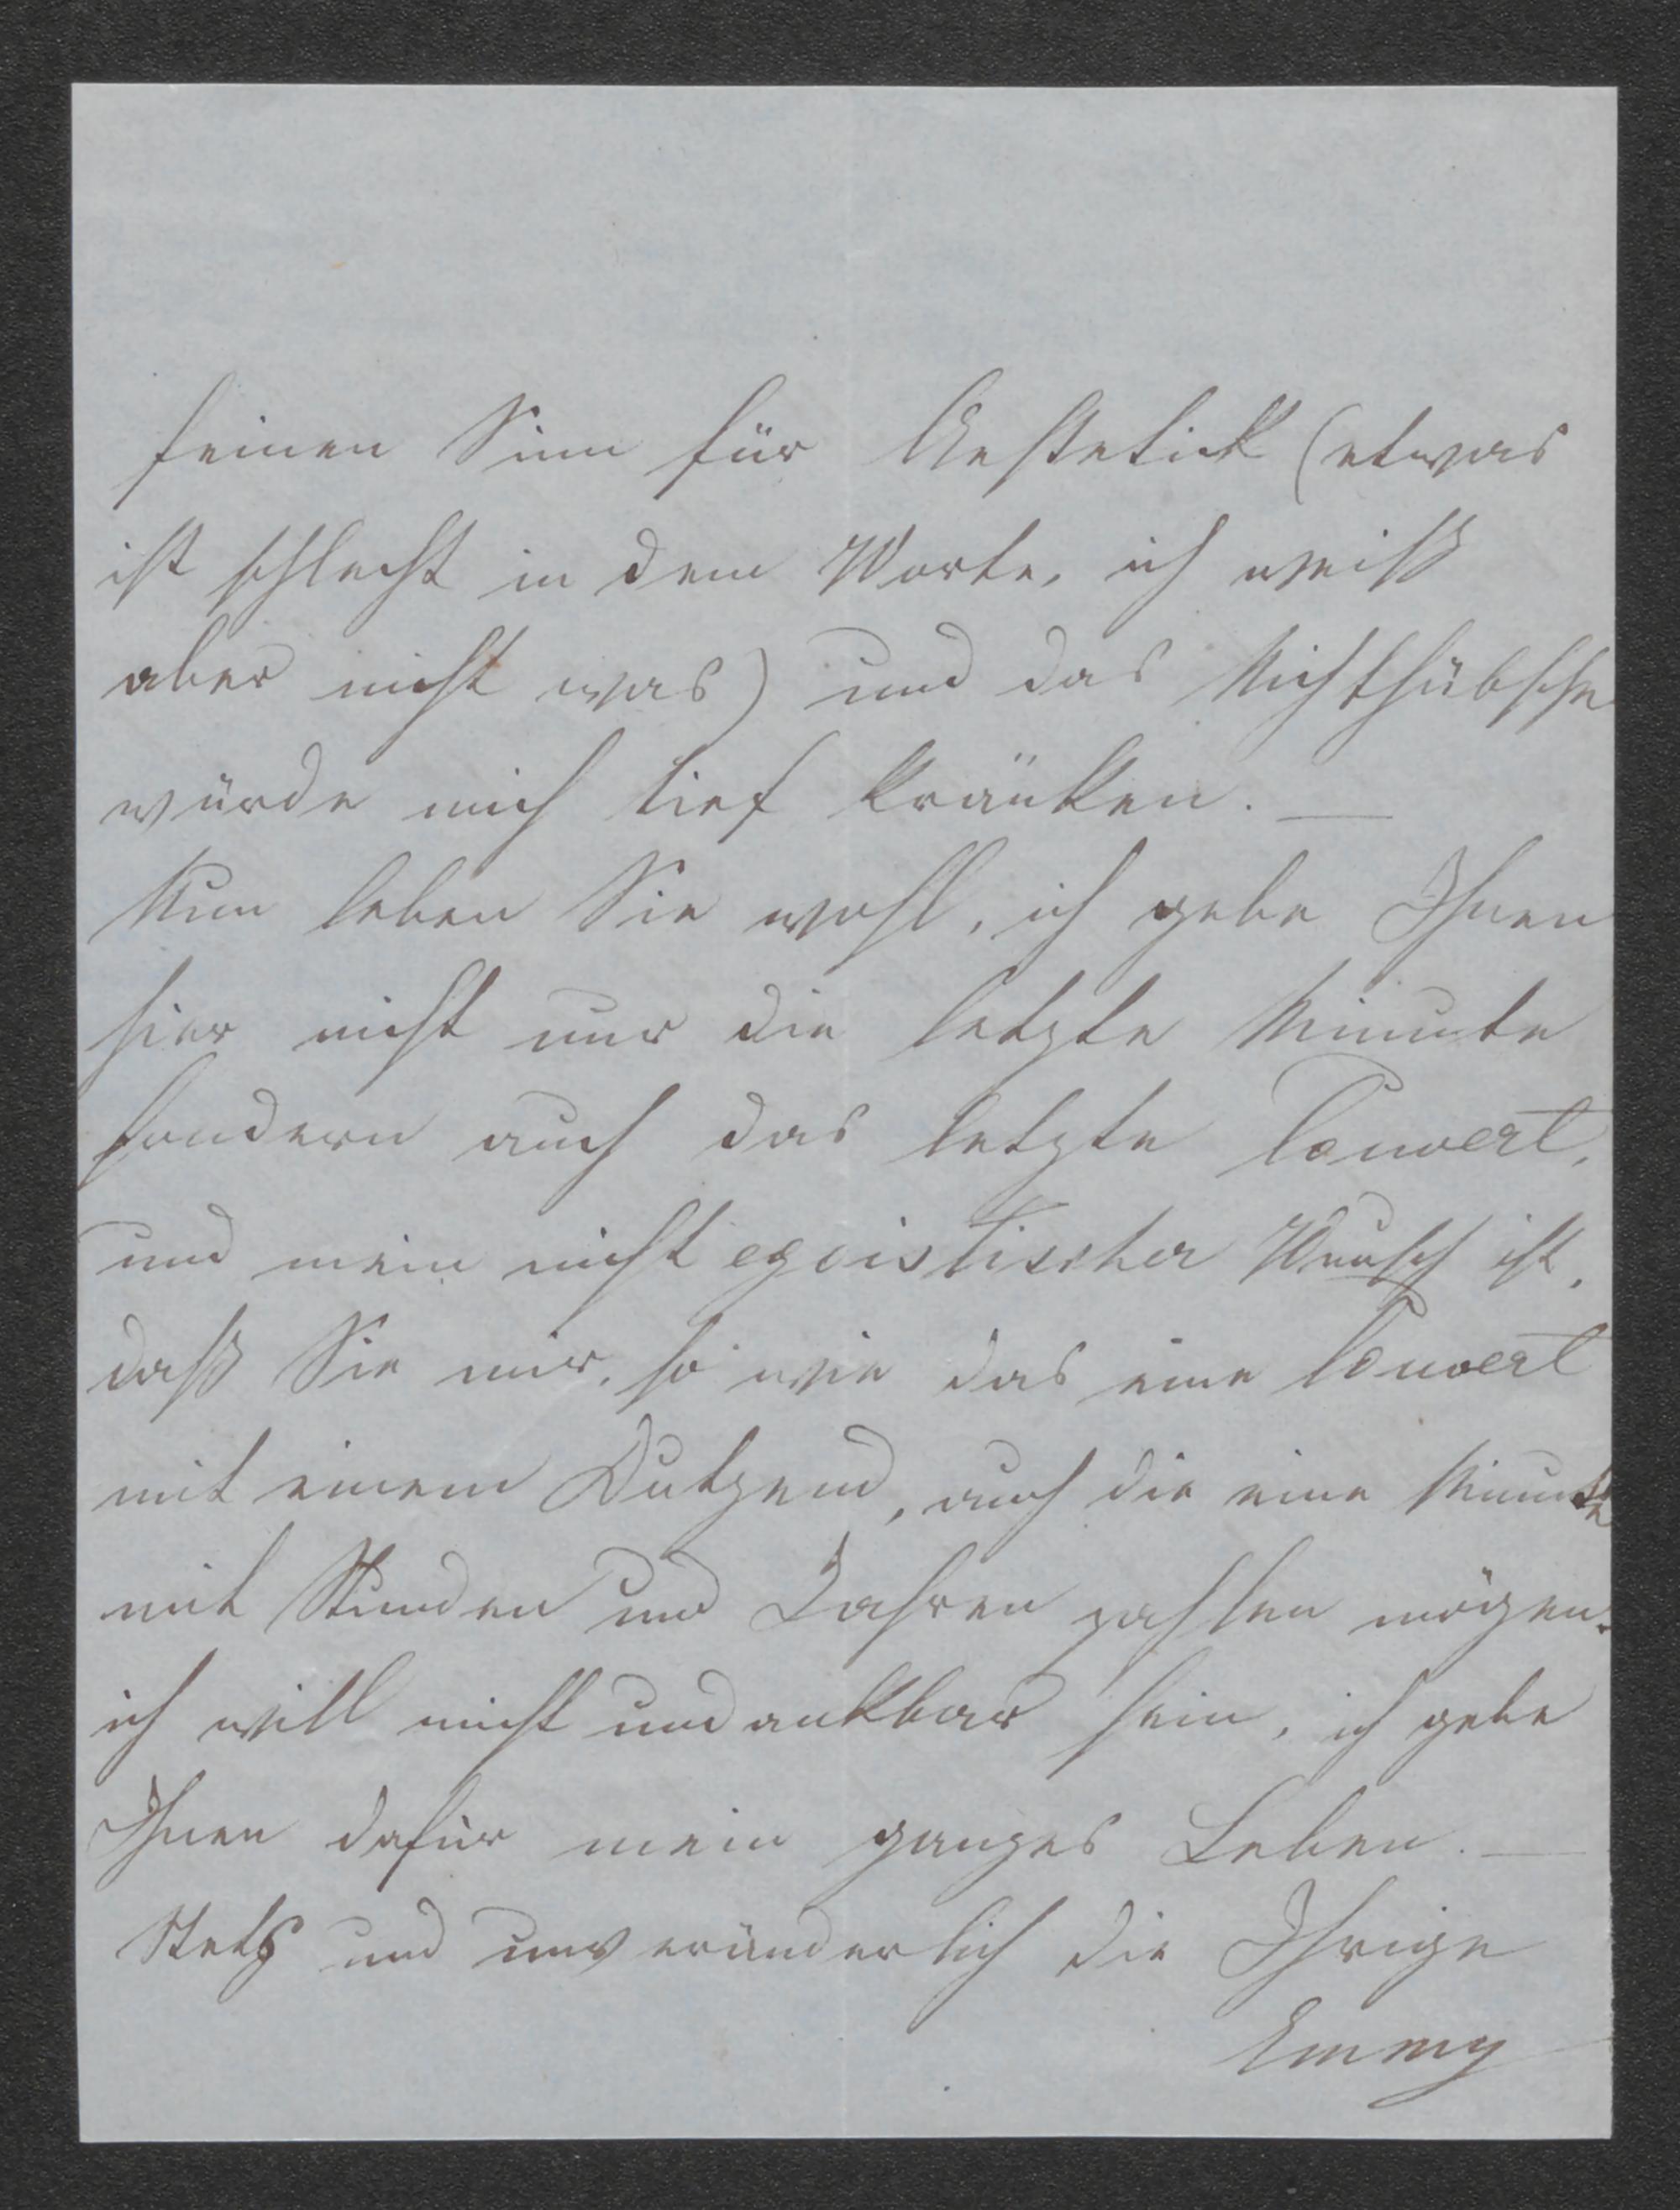 feinen Sinn für Aestetick (etwas
ist schlecht in dem Worte, ich weiß
aber nicht was) und das Nichthübsche
würde mich tief kränken. —
Nun leben Sie wohl, ich gebe Ihnen
hier nicht nur die letzte Minute
sondern auch das letzte Couvert,
und mein nicht egoistischer Wunsch ist,
daß Sie mir, so wie das eine Couvert
mit einem Dutzend, auch die eine Minute
mit Stunden und Jahren zahlen mögen.
ich will nicht undankbar sein, ich gebe
Ihnen dafür mein ganzes Leben. —
Stets und unveränderlich die Ihrige
Emmy